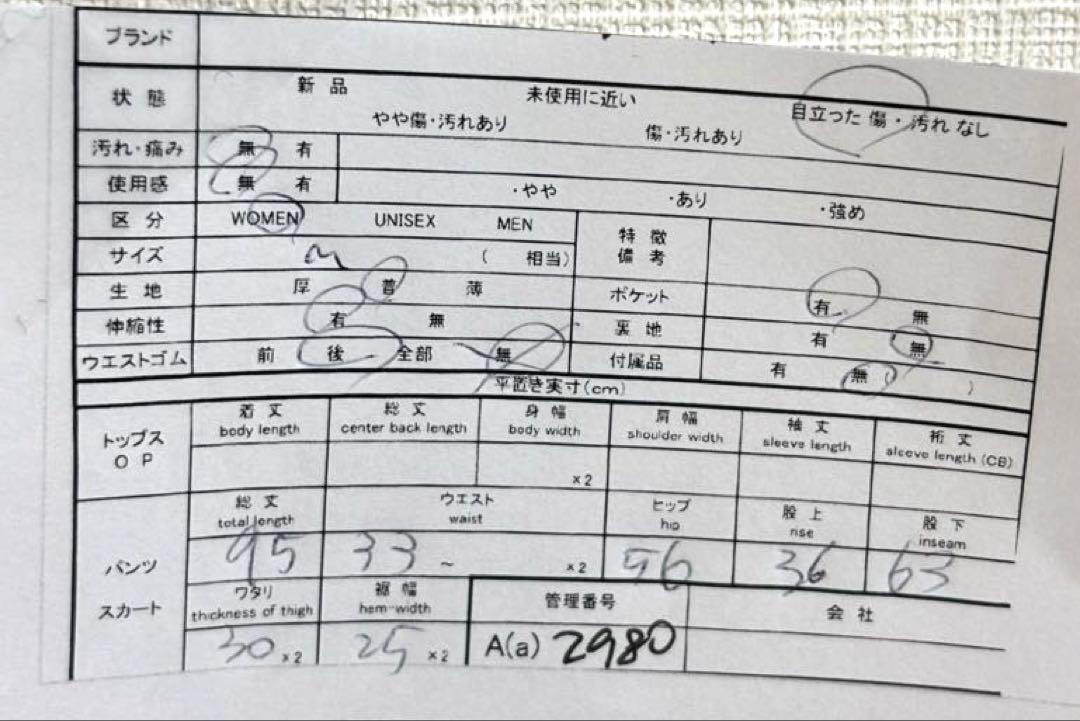 ブランド
状態 新品 未使用に近い 目立った傷・汚れなし
やや傷・汚れあり 傷・汚れあり
汚れ・痛み 無 有
使用感 無 有 ・やや ・あり ・強め
区分 WOMEN UNISEX MEN 特徴備考
サイズ M ( 相当)
生地 厚 普 薄 ポケット 有 無
伸縮性 有 無 裏地 有 無
ウエストゴム 前 後 全部 無 付属品 有 無 ( )
平置き実寸(cm)
トップス OP 着丈 総丈 身幅 肩幅 袖丈 裄丈
body length center back length body width shoulder width sleeve length sleeve length (CB)
×2
総丈 ウエスト ヒップ 股上 股下
total length waist hip rise inseam
パンツ 95 33 ~ ×2 56 36 63
スカート ワタリ 裾幅 管理番号 会社
thickness of thigh hem-width
30 ×2 25 ×2 A(a) 2980